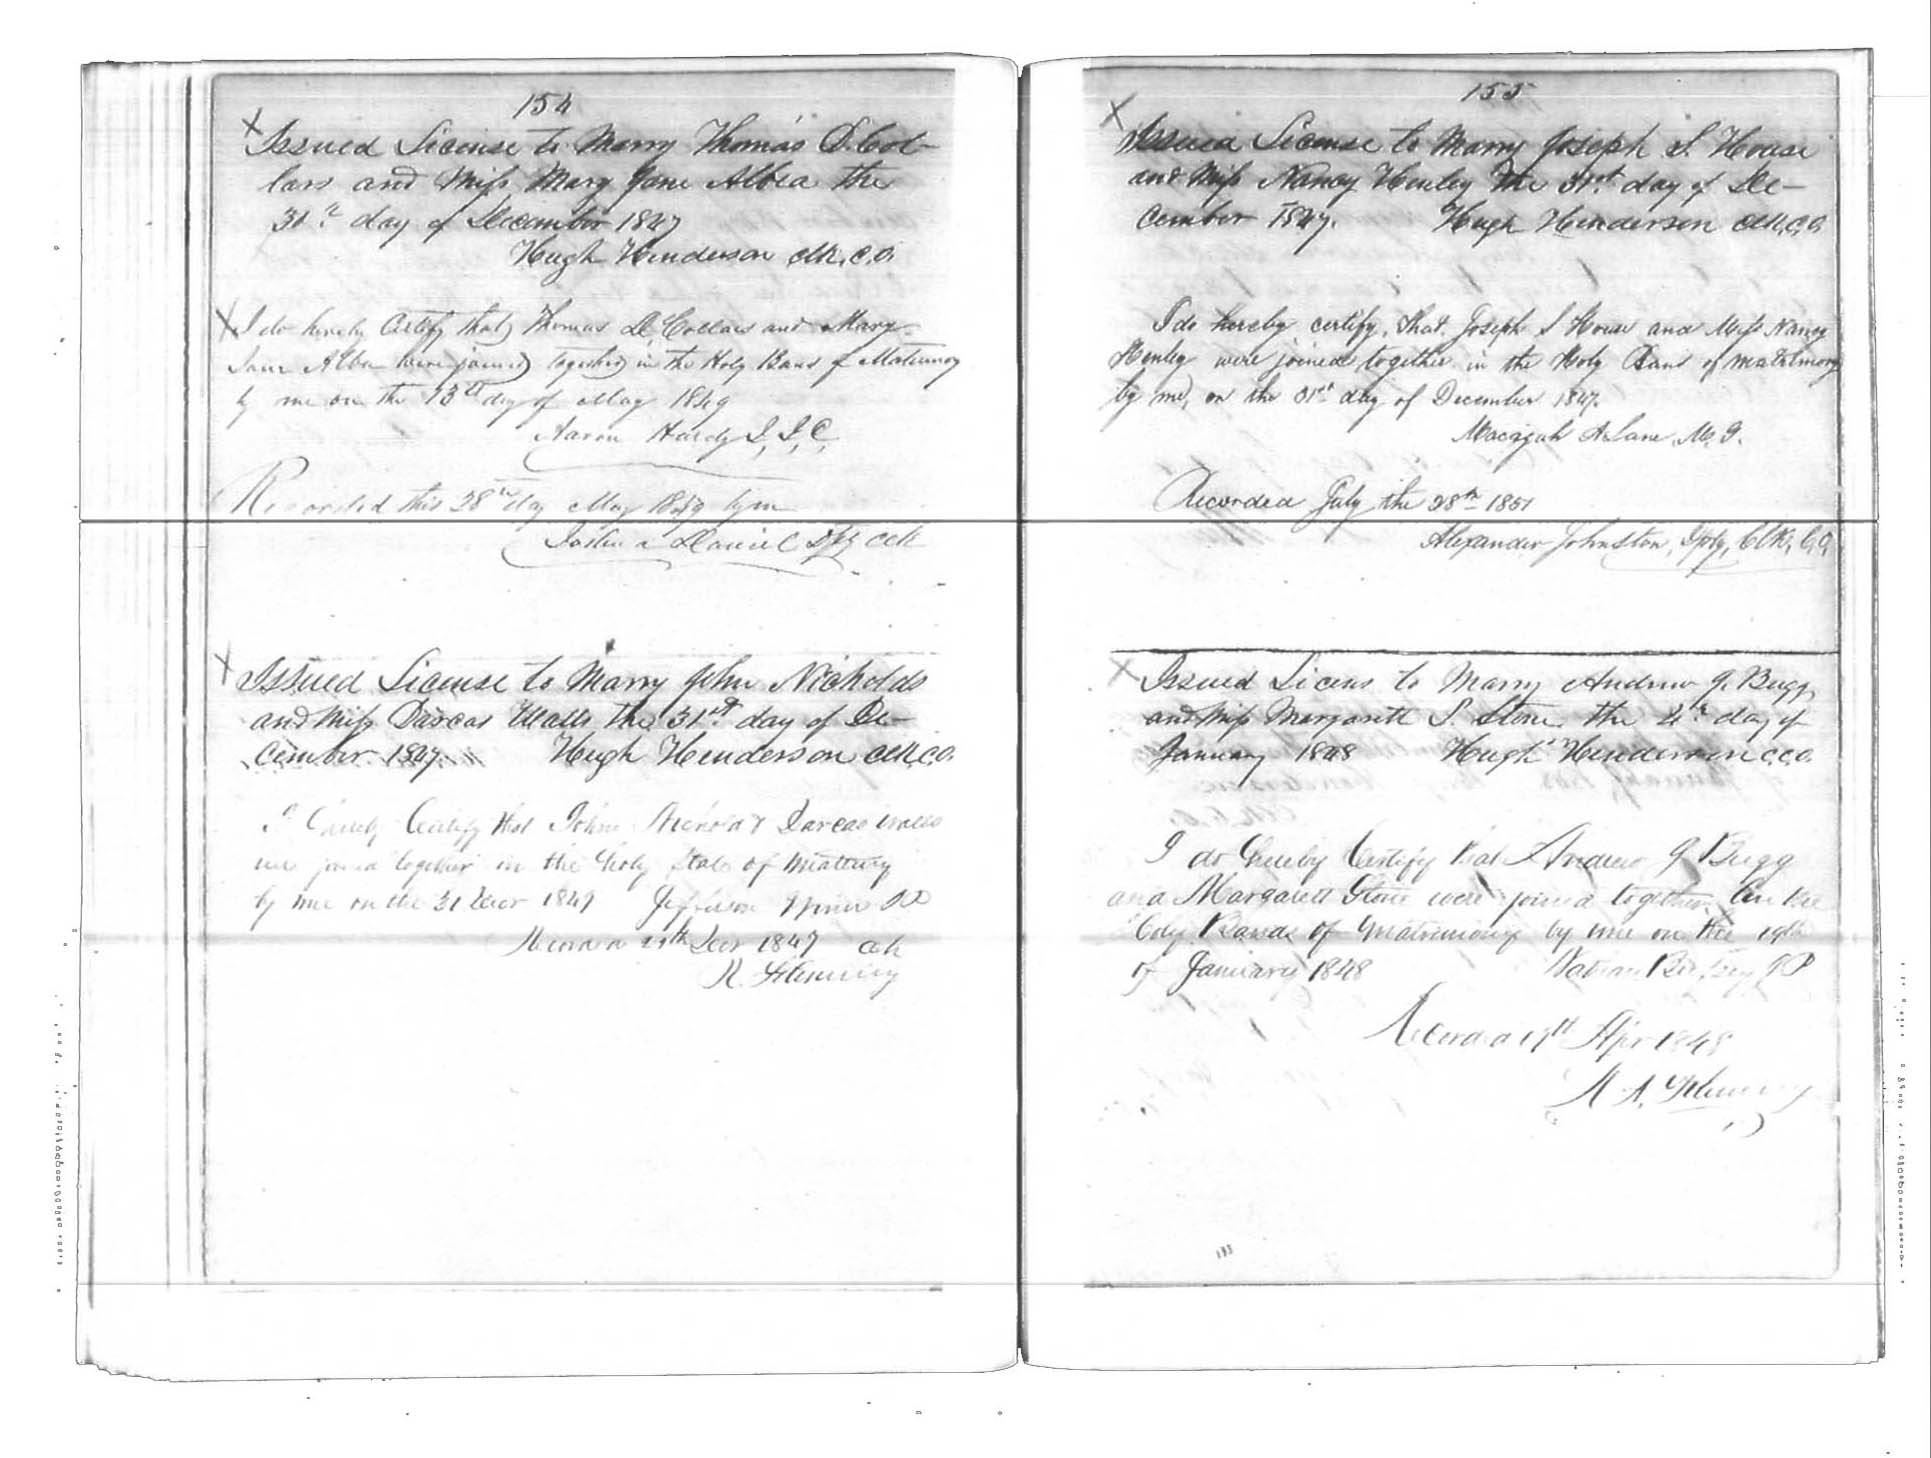 154
Issued License to Marry Thomas D. Col-
lars and Miss Mary Jane Albea the
31st day of December 1847
Hugh Henderson Clk. C. O.
I do hereby Certify that Thomas D. Collars and Mary
Jane Albea were joined together in the Holy Bans of Matrimony
by me on the 13th day of May 1849
Aaron Hardy J. I. C.
Recorded this 28th day May 1849 by me
Daniel Dpty Clk
Issued License to Marry John Nicholds
and Miss Darcas Walls the 31st day of De-
cember 1847. Hugh Henderson Clk. C. O.
I hereby Certify that John Darcas Walls
were joined together in the Holy State of
by me on the 31 Decr 1847 Jefferson
Decr 1847 Clk
155
Issued License to Marry Joseph S. House
and Miss Nancy Henley the 31st day of De-
cember 1847. Hugh Henderson Clk. C. O.
I do hereby certify, that Joseph S House and Miss Nancy
Henley were joined together in the Holy Bans of matrimony
by me, on the 31st day of December 1847.
Macajah A Lane, M. G.
Recorded July the 28th 1851
Alexander Johnston, Dpty, Clk, C, O,
Issued Licens to Marry Andrew J. Bugg
and Miss Margarett S. Stone the 4th day of
January 1848 Hugh Henderson C. C. O.
I do hereby Certify that Andrew J Bugg
and Margarett Stone were joined together in the
Holy Bands of Matrimony by me on the 19th
of January 1848 Nathan JP
Recorded 19th Apr 1848
133